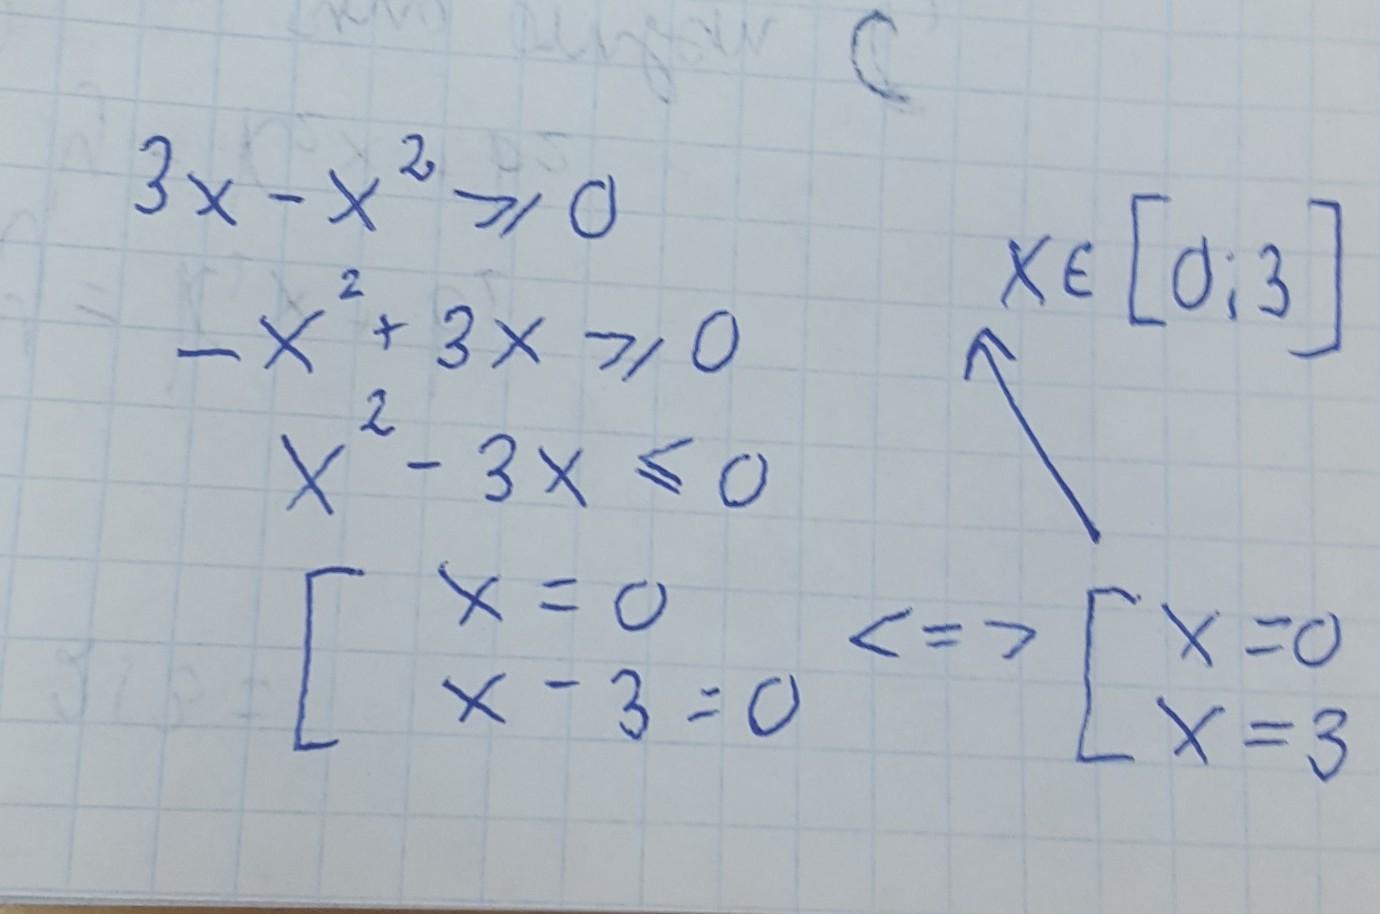 C
3x - x² ⩾ 0
- x² + 3x ⩾ 0
x² - 3x ⩽ 0
[ x = 0
x - 3 = 0
<=> [ x = 0
x = 3
x ∈ [0; 3]